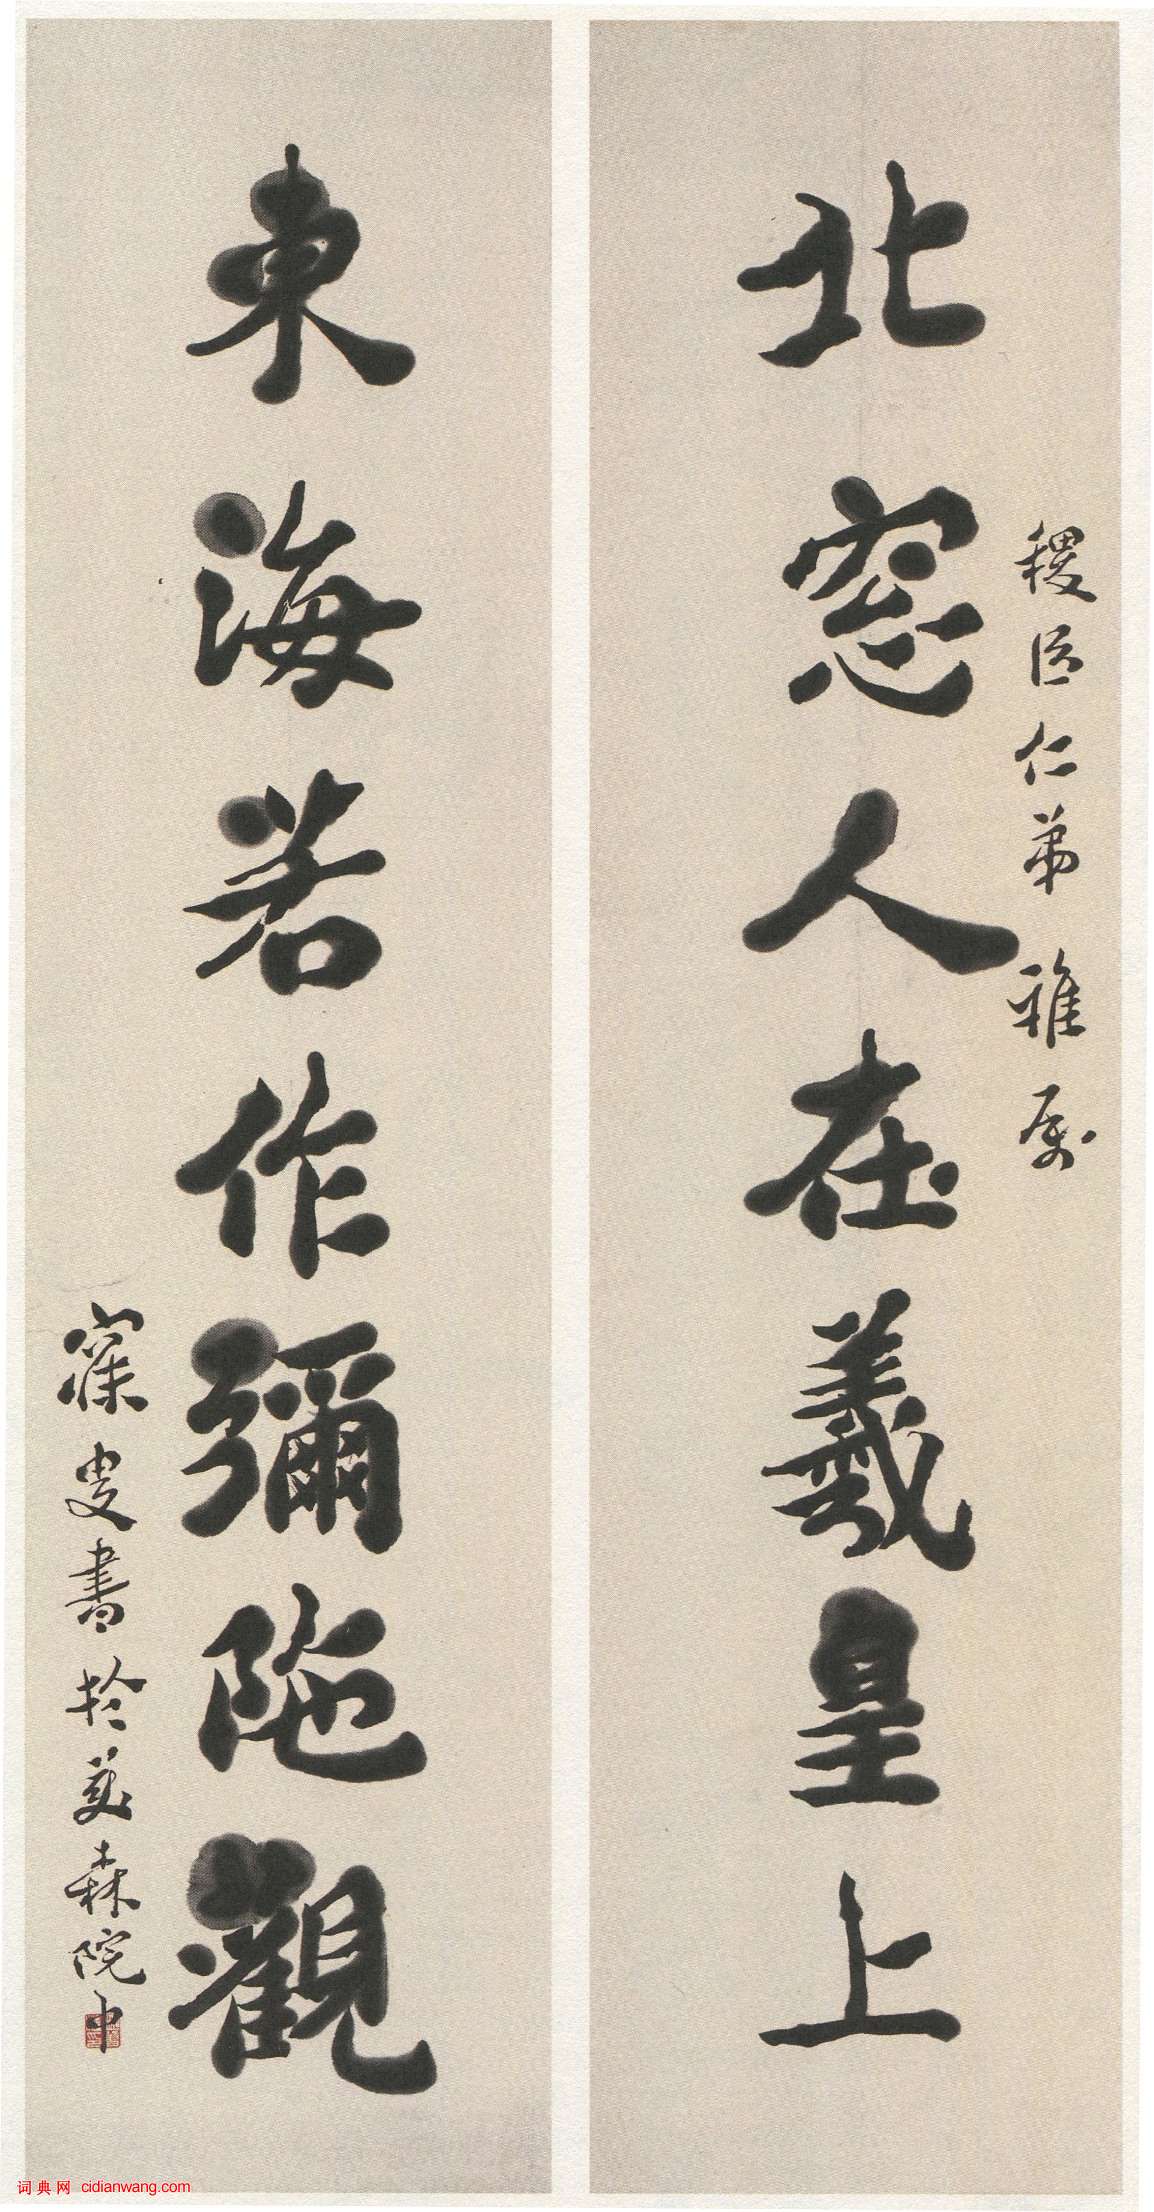 北窓人在羲皇上
稷臣仁弟雅属
東海若作彌陁觀
寐叟書於英森院中
词典网 cidianwang.com